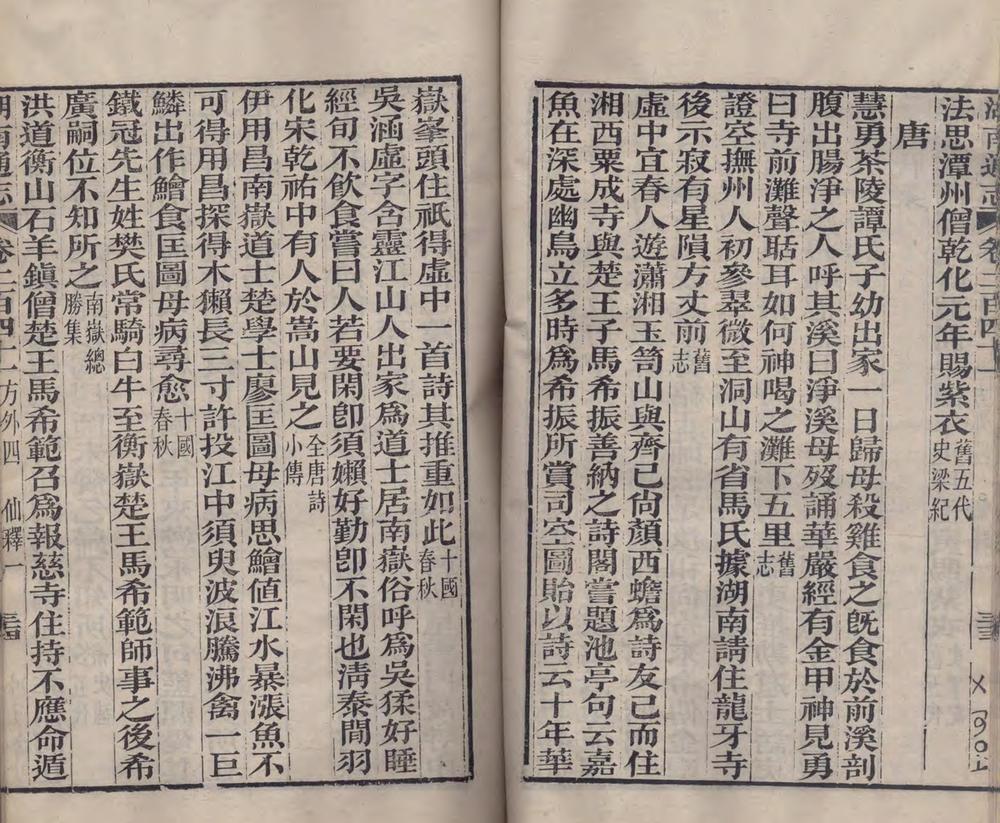 湖南通志 卷二百四十一
法思潭州僧乾化元年賜紫衣舊五代史梁紀
唐
慧勇茶陵譚氏子幼出家一日歸母殺雞食之旣食於前溪剖
腹出腸淨之人呼其溪曰淨溪母歿誦華嚴經有金甲神見勇
曰寺前灘聲聒耳如何神喝之灘下五里舊志
證空撫州人初參翠微至洞山有省馬氏據湖南請住龍牙寺
後示寂有星隕方丈前舊志
虛中宜春人遊瀟湘玉笥山與齊己尙顏西蟾爲詩友已而住
湘西粟成寺與楚王子馬希振善納之詩閣嘗題池亭句云嘉
魚在深處幽鳥立多時爲希振所賞司空圖貽以詩云十年華
嶽峯頭住祇得虛中一首詩其推重如此十國春秋
吳涵虛字含靈江山人出家爲道士居南嶽俗呼爲吳猱好睡
經旬不飲食嘗曰人若要閑卽須嬾好勤卽不閑也淸泰間羽
化宋乾祐中有人於嵩山見之全唐詩小傳
伊用昌南嶽道士楚學士廖匡圖母病思鱠値江水暴漲魚不
可得用昌探得木獺長三寸許投江中須臾波浪騰沸禽一巨
鱗出作鱠食匡圖母病尋愈十國春秋
鐵冠先生姓樊氏常騎白牛至衡嶽楚王馬希範師事之後希
廣嗣位不知所之南嶽總勝集
洪道衡山石羊鎭僧楚王馬希範召爲報慈寺住持不應命遁
湖南通志 卷二百四十一 方外四 仙釋一